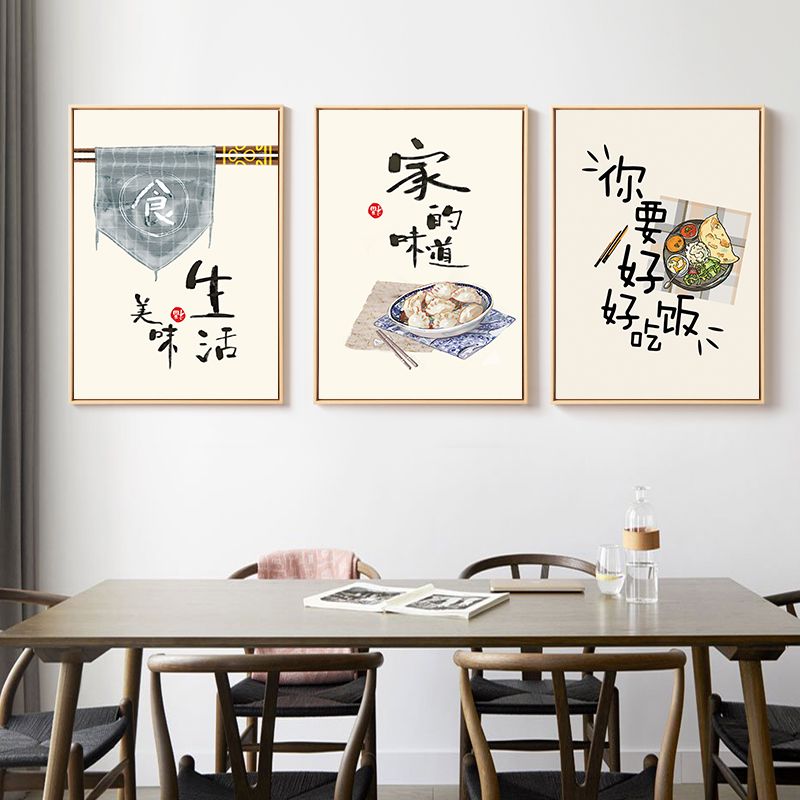 食
美味
生活
家的味道
你要好好吃饭